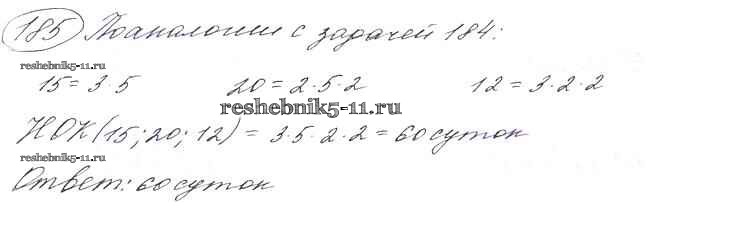 185 По аналогии с задачей 184:
reshebnik5-11.ru
15 = 3·5 20 = 2·5·2 12 = 3·2·2
reshebnik5-11.ru
НОК(15; 20; 12) = 3·5·2·2 = 60 суток
reshebnik5-11.ru
Ответ: 60 суток